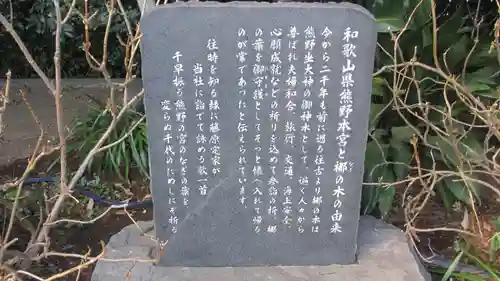 和歌山県熊野本宮と梛の木の由来
今から二千年も前に遡る往古より梛の木は
熊野坐大神の御神木として、遍く人々から
尊ばれ夫婦和合、旅行、交通、海上安全、
心願成就などの祈りを込めて参詣の折、梛
の葉を御守護としてそっと懐へ入れて帰る
のが常であったと伝えられています。
往時を知る縁に藤原定家が
当社に詣でて詠める歌一首
千早振る熊野の宮のなぎの葉を
変らぬ千代のためしにぞ折る